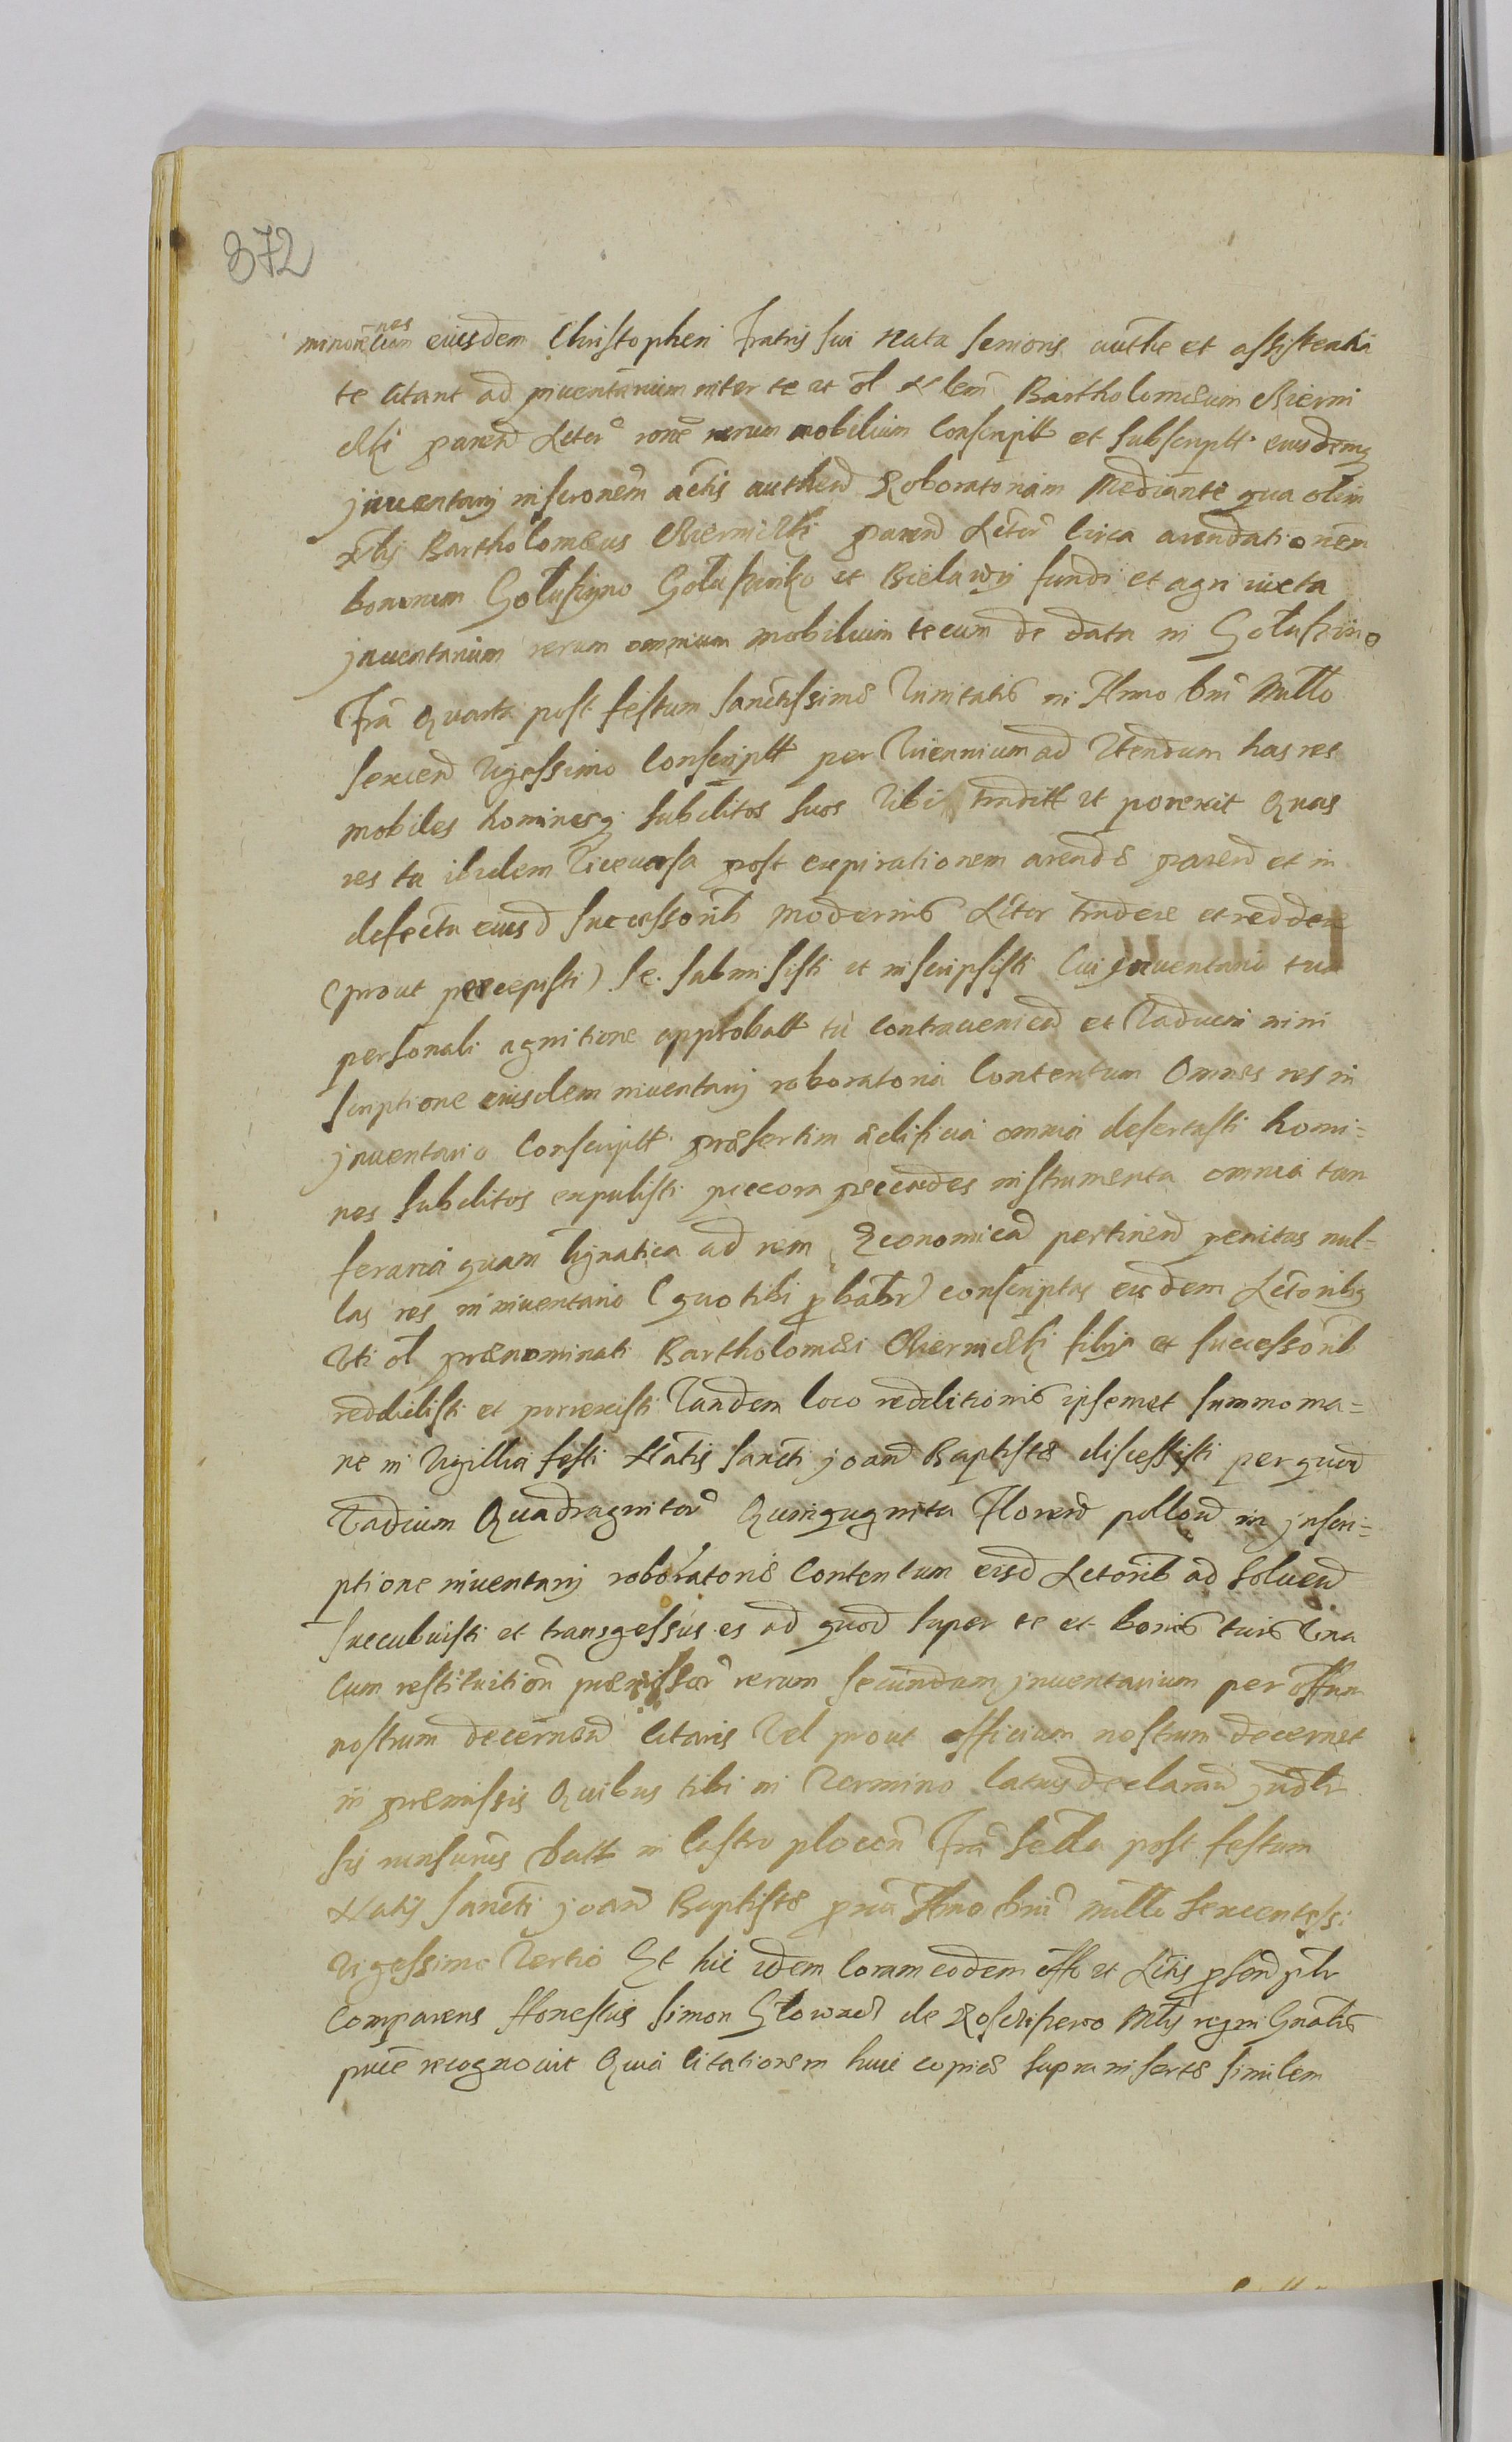 872
minore nes eiusdem Christopheri Fratris sui nata senioris authe et assistentia
te citant ad inventarium inter te et ol Bartholomæum Mierni
cki parend Actor rone rerum mobilium Conscriptt et subscriptt eiusdemq
jnventarij inscronem actis authend Roboratoriam Mediante qua olim
Bartholomeus Miernicki parend Actor circa arendationem
bonorum Gołuszyno Gołuszinko et Bielawy fundi et agri iuxta
jnventarium rerum omnium mobilium tecum de data in Gołuszino
Fra Quarta post festum sanctissimæ Trinitatis in Anno Dni Millo
sexcend Vigessimo Conscriptt per Triennium ad Vtendum has res
mobiles hominesq subditos suos tibi traditt et porrexit Quas
res tu ibidem Viceversa post expirationem arendæ parend et in
defectu eiusd successorib modernis Actor tradere et reddere
(prout percepisti) se submisisti et inscripsisti Cui jnventario tua
personali agnitione approbatt tu contraveniend et Vadum in in
scriptione eiusdem inventarij roboratoria Contentum Omnes res in
jnventario Conscriptt præsertim ædificia omnia desertasti homi=
nes subditos expulisti pecora pecudes instrumenta omnia tam
feraria quam lignatica ad rem Œconomicad pertinend penitus nul=
las res in inventario (quo tibi pbabr) conscriptas eisdem Actoribq
Vti ol prænominati Bartholomæi Miernicki filijs et successorib
reddidisti et porrexisti Tandem loco redditionis ipsemet summo ma=
ne in Vigillia festi Natis sancti joand Baptistæ discessisti per quod
Vadium Quadragintor Quinguginta Florend pollond in jnscri=
ptione inventarij roboratoriæ Contentum eisd Actorib ad solvend
succubuisti et transgessus es ad quod super te et bonis tuis Vna
Cum restituition præmissor rerum secundum jnventarium per offm
nostrum decernend citaris Vel prout officium nostrum decernet
in præmissis Quibus tibi in Termino latius declarand judtr
sis runsurus Datt in Castro plocen Fra sexta post festum
Natis sancti joand Baptistæ pxia Anno Dni millo sexcentessi
Vigessimo Tertio Et hic idem Coram eodem offo et Actis psend pltr
Comparens Honestus simon Głowacz de Mtis regni Gnalis
pnce recognovit Quia citationem huic copiæ supra insertæ similem